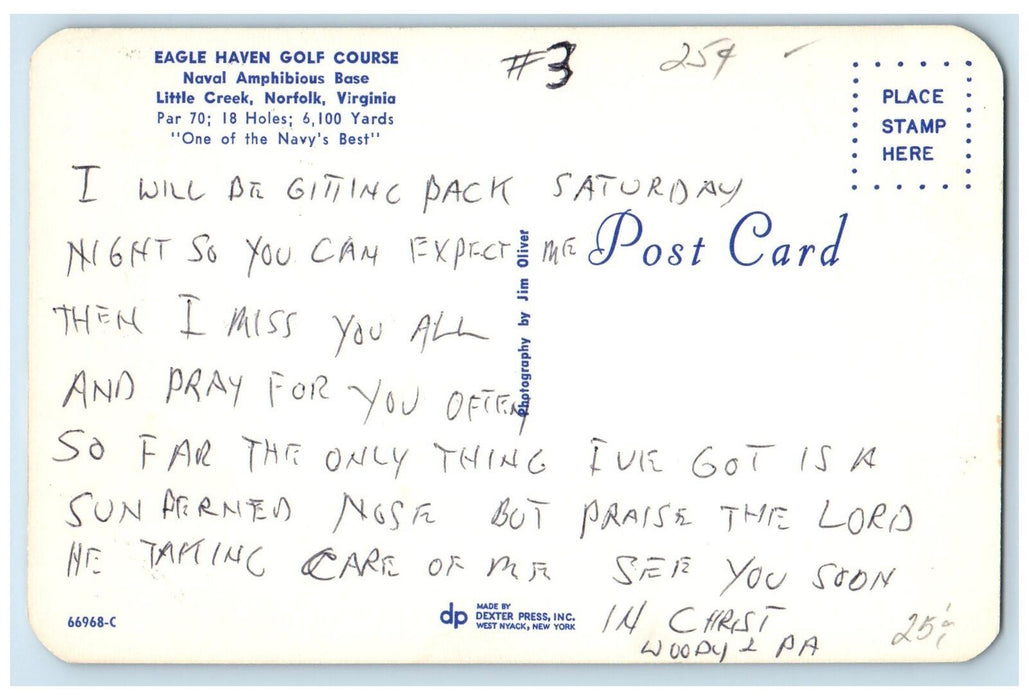 EAGLE HAVEN GOLF COURSE
Naval Amphibious Base
Little Creek, Norfolk, Virginia
Par 70; 18 Holes; 6,100 Yards
"One of the Navy's Best"
#3
25¢
PLACE
STAMP
HERE
Post Card
Photography by Jim Oliver
I WILL BE GITTING BACK SATURDAY
NIGHT SO YOU CAN EXPECT ME
THEN I MISS YOU ALL
AND PRAY FOR YOU OFTEN
SO FAR THE ONLY THING IVE GOT IS A
SUN BERNED NOSE BUT PRAISE THE LORD
HE TAKING CARE OF ME SEE YOU SOON
IN CHRIST
WOODY & PA
25¢
66968-C
dp MADE BY
DEXTER PRESS, INC.
WEST NYACK, NEW YORK